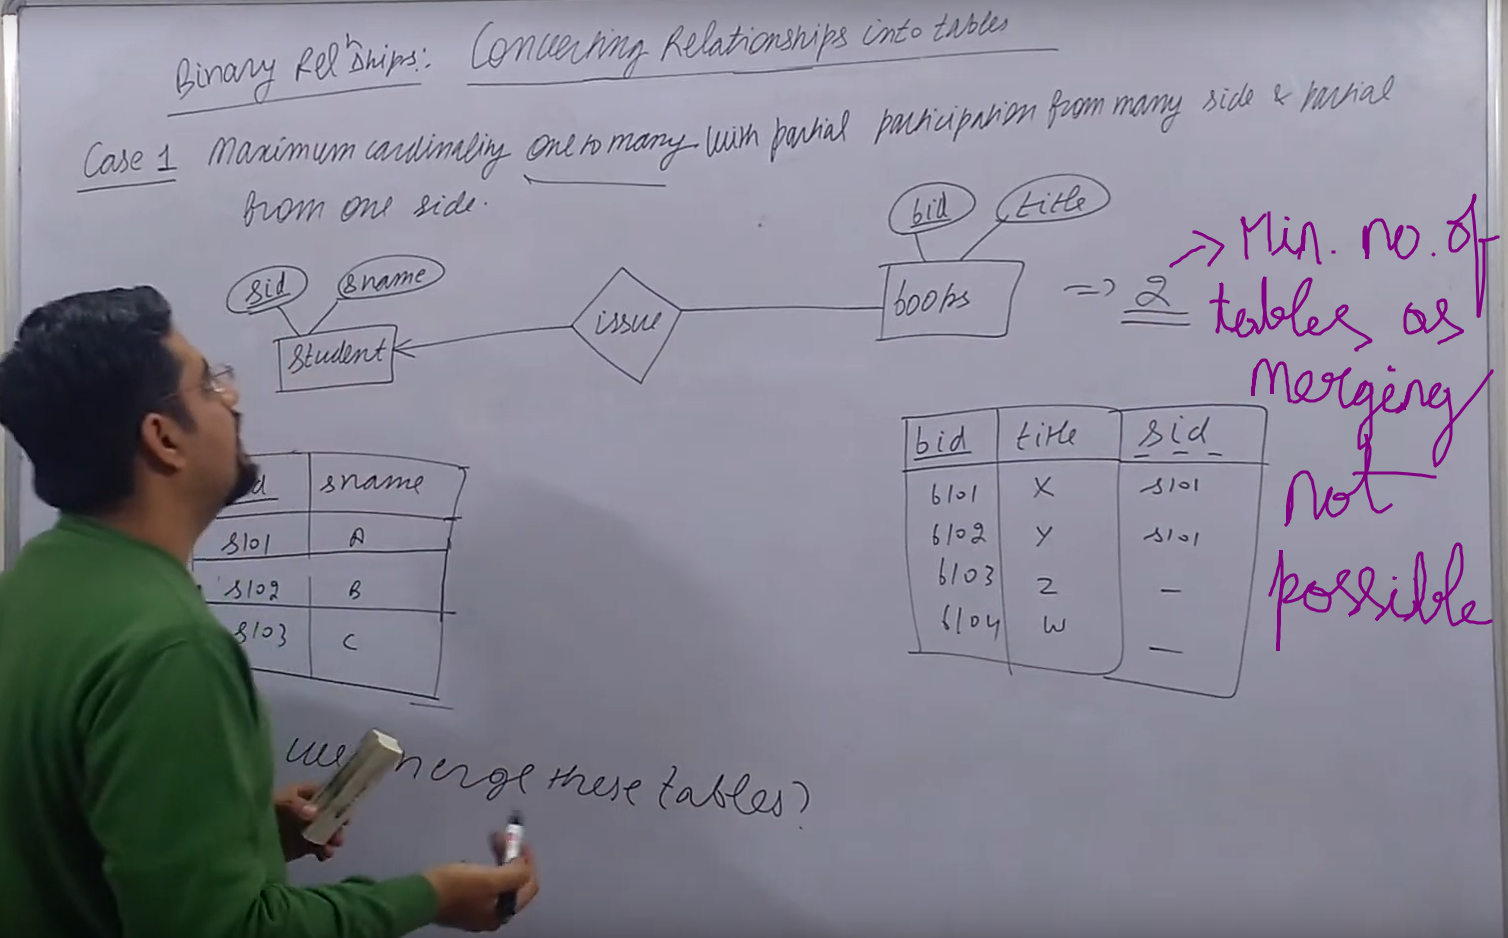 Binary Relnships: Converting Relationships into tables
Case 1 Maximum cardinality one to many with partial participation from many side & partial
from one side.
bid title
sid sname
student issue books => 2 -> Min. no. of
tables as
merging
not
possible
sname
s101 A
s102 B
s103 C
bid title sid
b101 X s101
b102 Y s101
b103 Z —
b104 W —
we merge these tables?